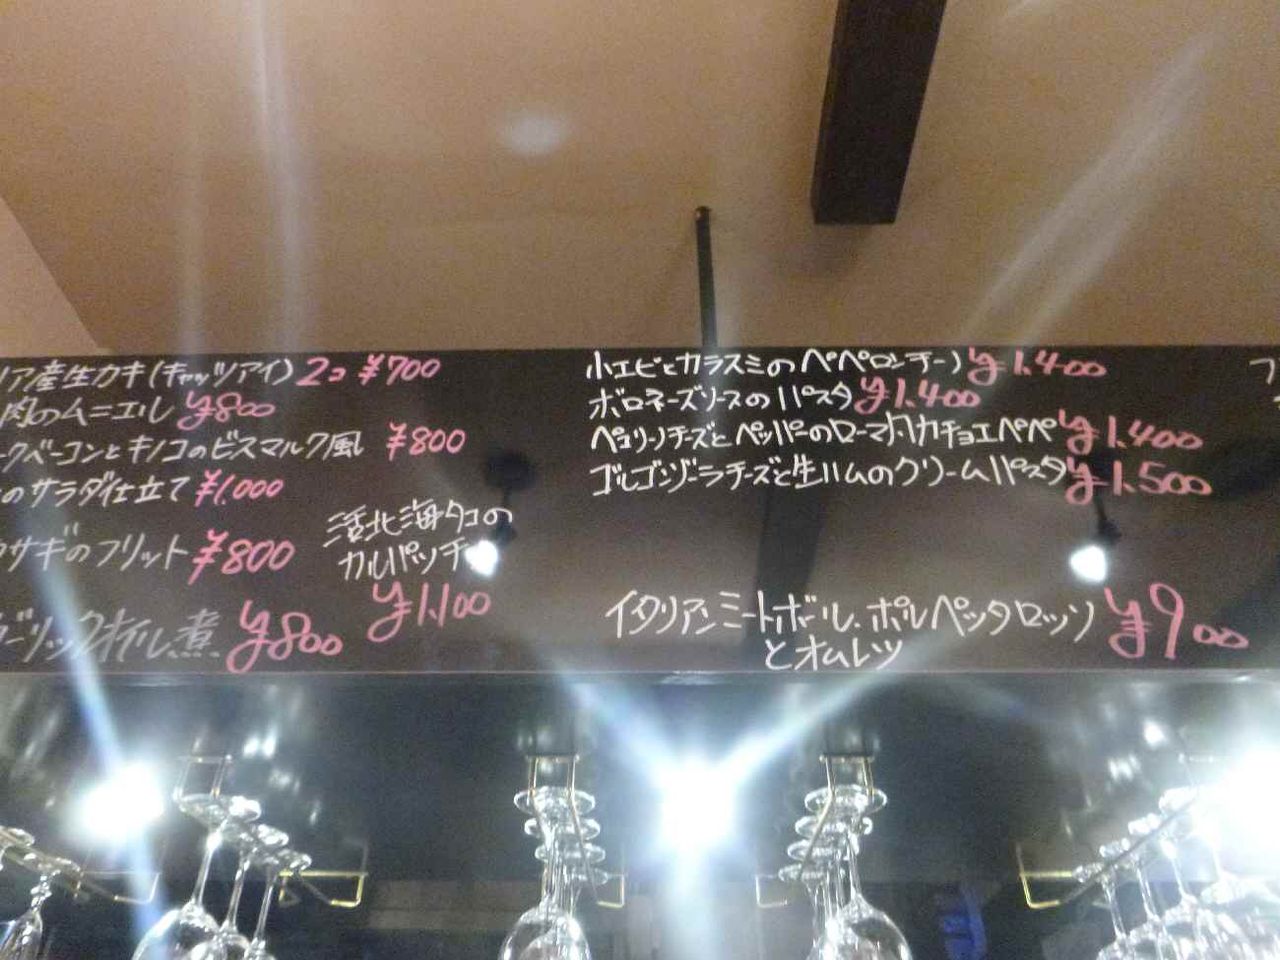 リア産生カキ(キャッツアイ)2コ ¥700
肉のムニエル ¥800
ークベーコンとキノコのビスマルク風 ¥800
のサラダ仕立て ¥1,000
サギのフリット ¥800
活北海タコの
カルパッチョ
¥1,100
ガーリックオイル煮 ¥800
小エビとカラスミのペペロンチーノ ¥1,400
ボロネーズソースのパスタ ¥1,400
ペコリーノチーズとペッパーのローマ風カチョエペペ ¥1,400
ゴルゴンゾーラチーズと生ハムのクリームパスタ ¥1,500
イタリアンミートボール、ポルペッタロッソ ¥900
とオムレツ